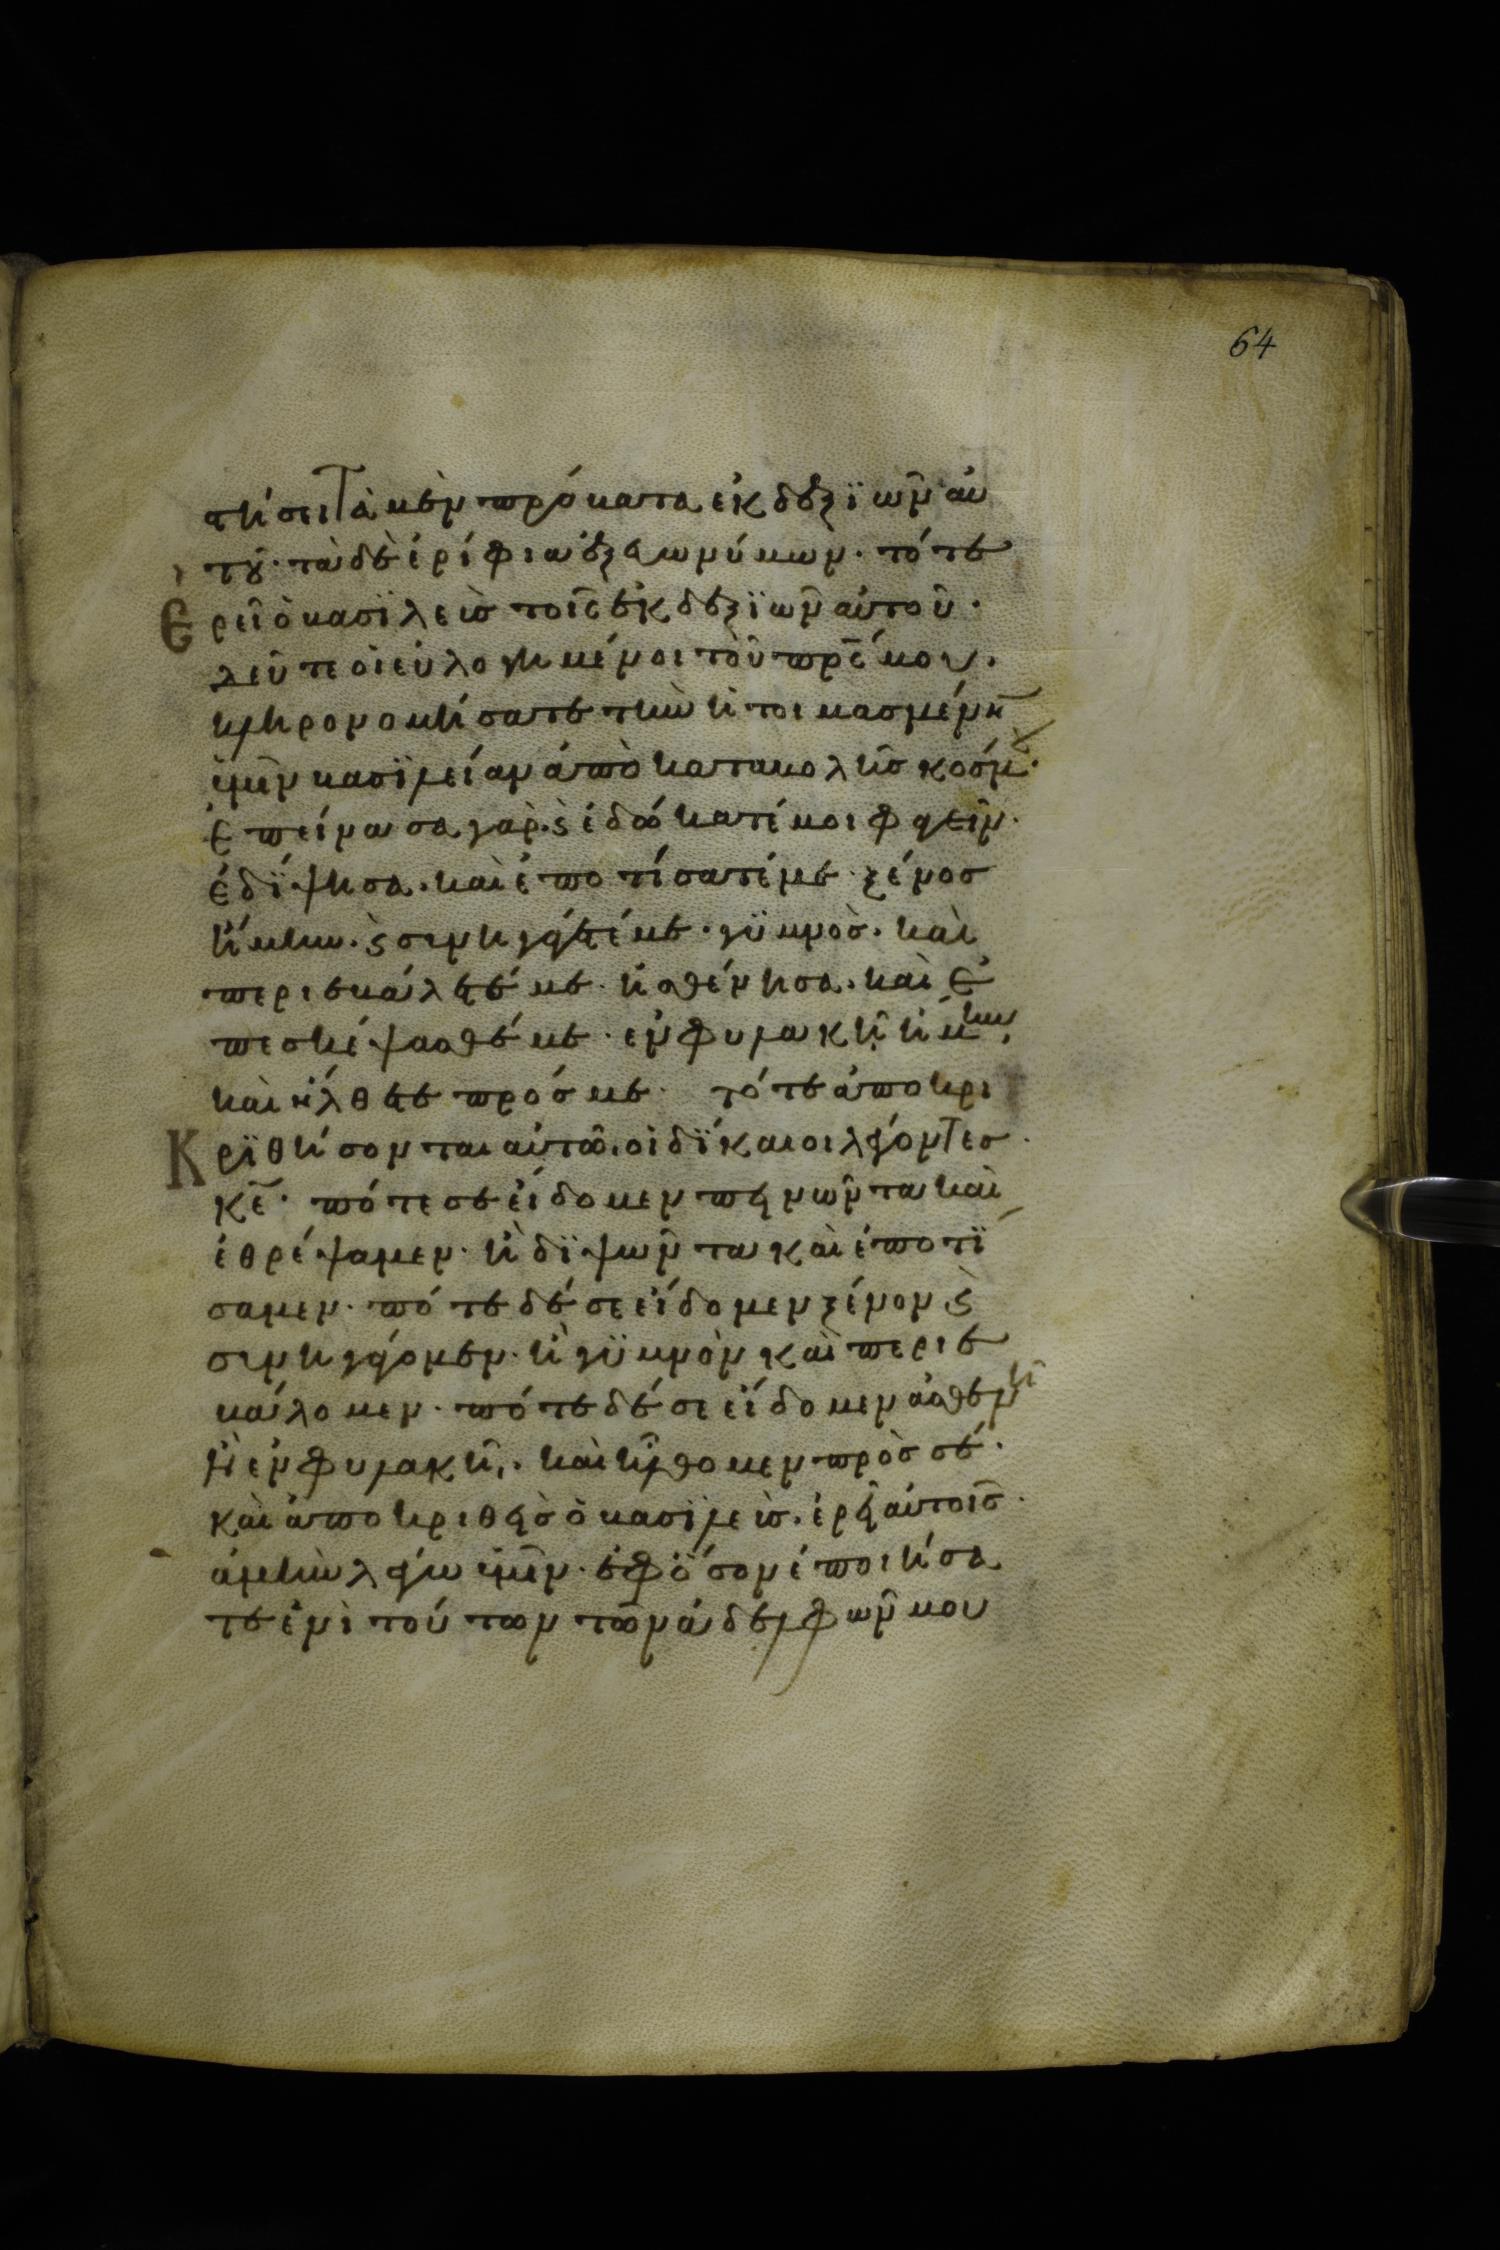 64
στήσει τὰ μὲν πρόβατα ἐκ δεξϊῶν αὐ
τοῦ· τὰ δὲ ἐρίφια ἐξ εὐωνύμων· τότε
ἐρεῖ ὁ βασϊλεὺσ τοῖς ἐκ δεξϊῶν αὐτοῦ·
δεῦτε οἱ εὐλογημένοι τοῦ πρς μου·
κληρονομήσατε τὴν ἡτοιμασμένην
ὑμῖν βασϊλείαν ἀπὸ καταβολῆσ κόσμου·
ἐπείνασα γὰρ· ϛ ἐδώκατέ μοι φαγεῖν·
ἐδΐψησα· καὶ ἐποτίσατέ με· ξένοσ
ἤμην· ϛ συνηγάγετέ με· γϋμνὸσ· καὶ
περιεβάλετέ με· ἠσθένησα· καὶ ἐ
πεσκέψασθέ με· ἐν φυλακῆ ἤμην,
καὶ ἤλθετε πρόσ με· τότε ἀποκρι
Κρϊθήσονται αὐτῶ· οἱ δΐκαιοι λέγοντεσ·
κε· πότε σε εἴδομεν πεινῶντα καὶ
ἐθρέψαμεν· ἢ δϊψῶντα καὶ ἐποτΐ
σαμεν· πότε δέ σε εἴδομεν ξένον ϛ
συνηγάγομεν· ἢ γϋμνὸν καὶ περιε
βάλομεν· πότε δέ σε εἴδομεν ἀσθενῆ
ἢ ἐν φυλακῆ,· καὶ ἤλθομεν πρὸσ σέ·
καὶ ἀποκριθεὶσ ὁ βασϊλεὺσ· ἐρεῖ αὐτοῖσ·
ἀμὴν λέγω ὑμῖν· ἐφ ὅσον ἐποιήσα
τε ἑνὶ τούτων τῶν ἀδελφῶν μου